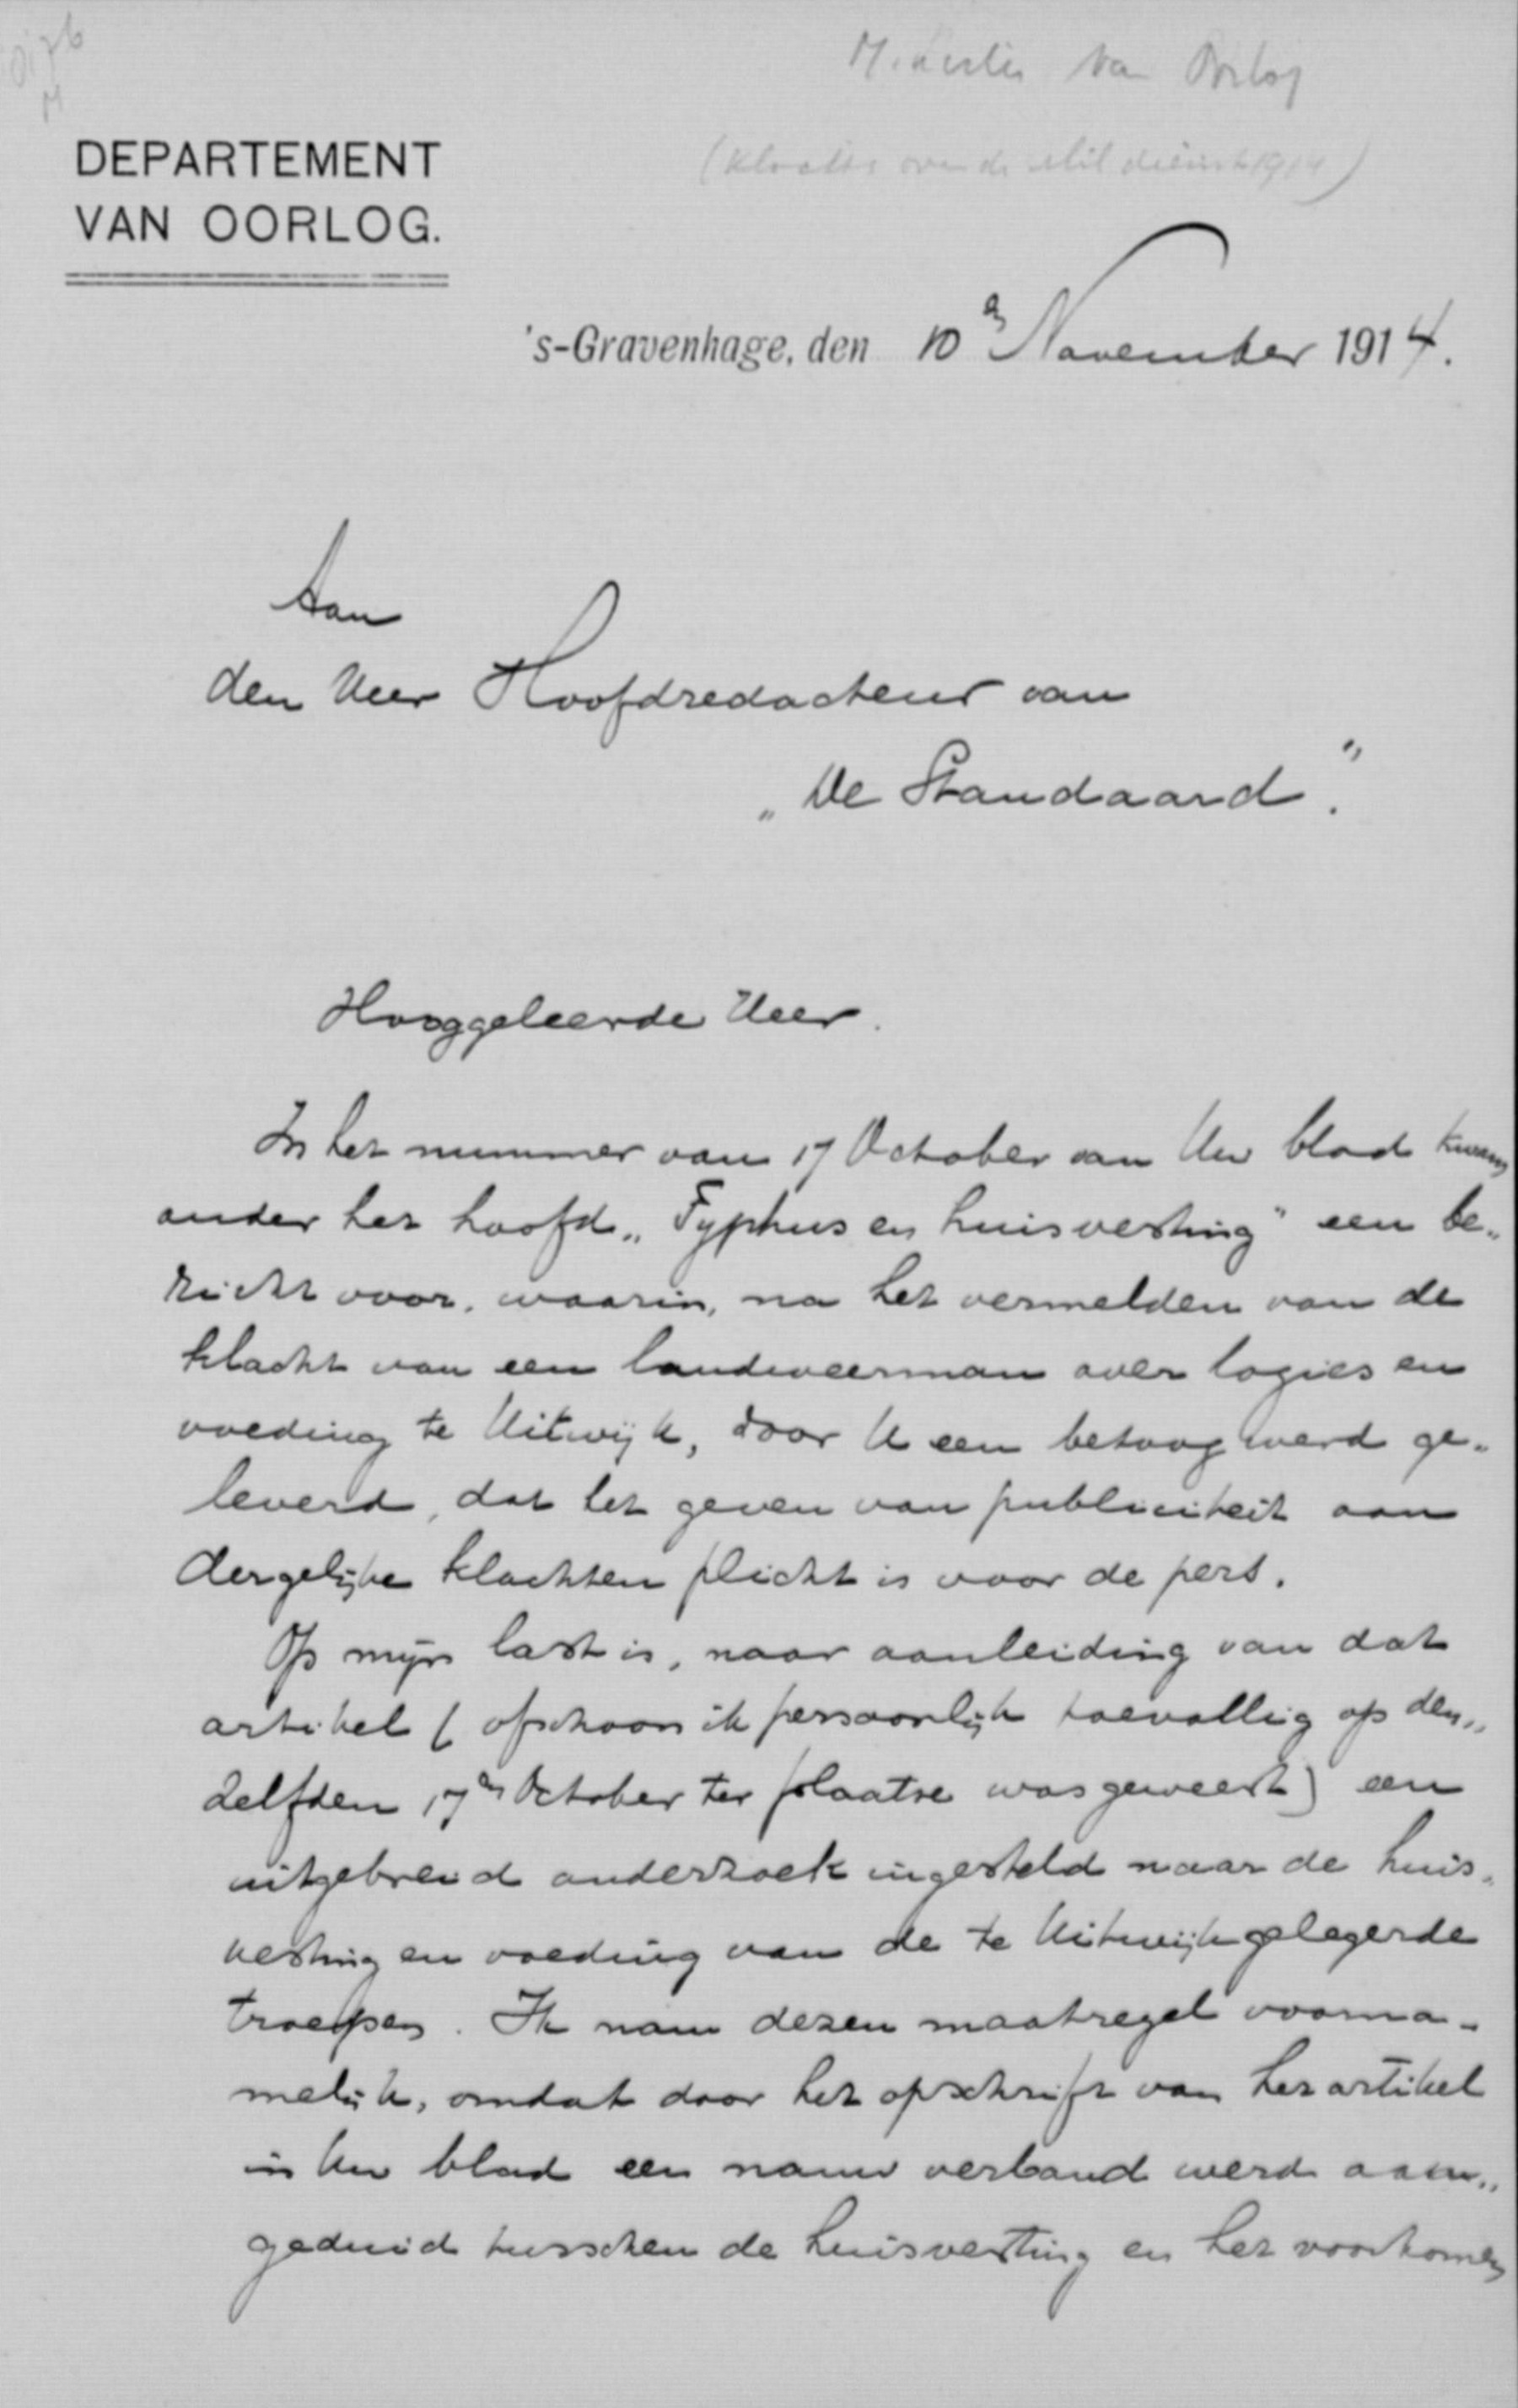 Minister van Oorlog
DEPARTEMENT
VAN OORLOG.
(Klachten over de Mil dienst 1914)
's-Gravenhage, den 10en November 1914.
Aan
den Heer Hoofdredacteur van
„De Standaard."
Hooggeleerde Heer.
In het nummer van 17 October van Uw blad kwam
onder het hoofd „Typhus en huisvesting" een be„
richt voor, waarin, na het vermelden van de
klacht van een landweerman over logies en
voeding te Uitwijk, door U een betoog werd ge„
leverd, dat het geven van publiciteit aan
dergelijke klachten plicht is voor de pers.
Op mijn last is, naar aanleiding van dat
artikel (ofschoon ik persoonlijk toevallig op den„
zelfden 17en October ter plaatse was geweest) een
uitgebreid onderzoek ingesteld naar de huis„
vesting en voeding van de te Uitwijk gelegerde
troepen. Ik nam dezen maatregel voorna-
melijk, omdat door het opschrift van het artikel
in Uw blad een nauw verband werd aan„
geduid tusschen de huisvesting en het voorkomen